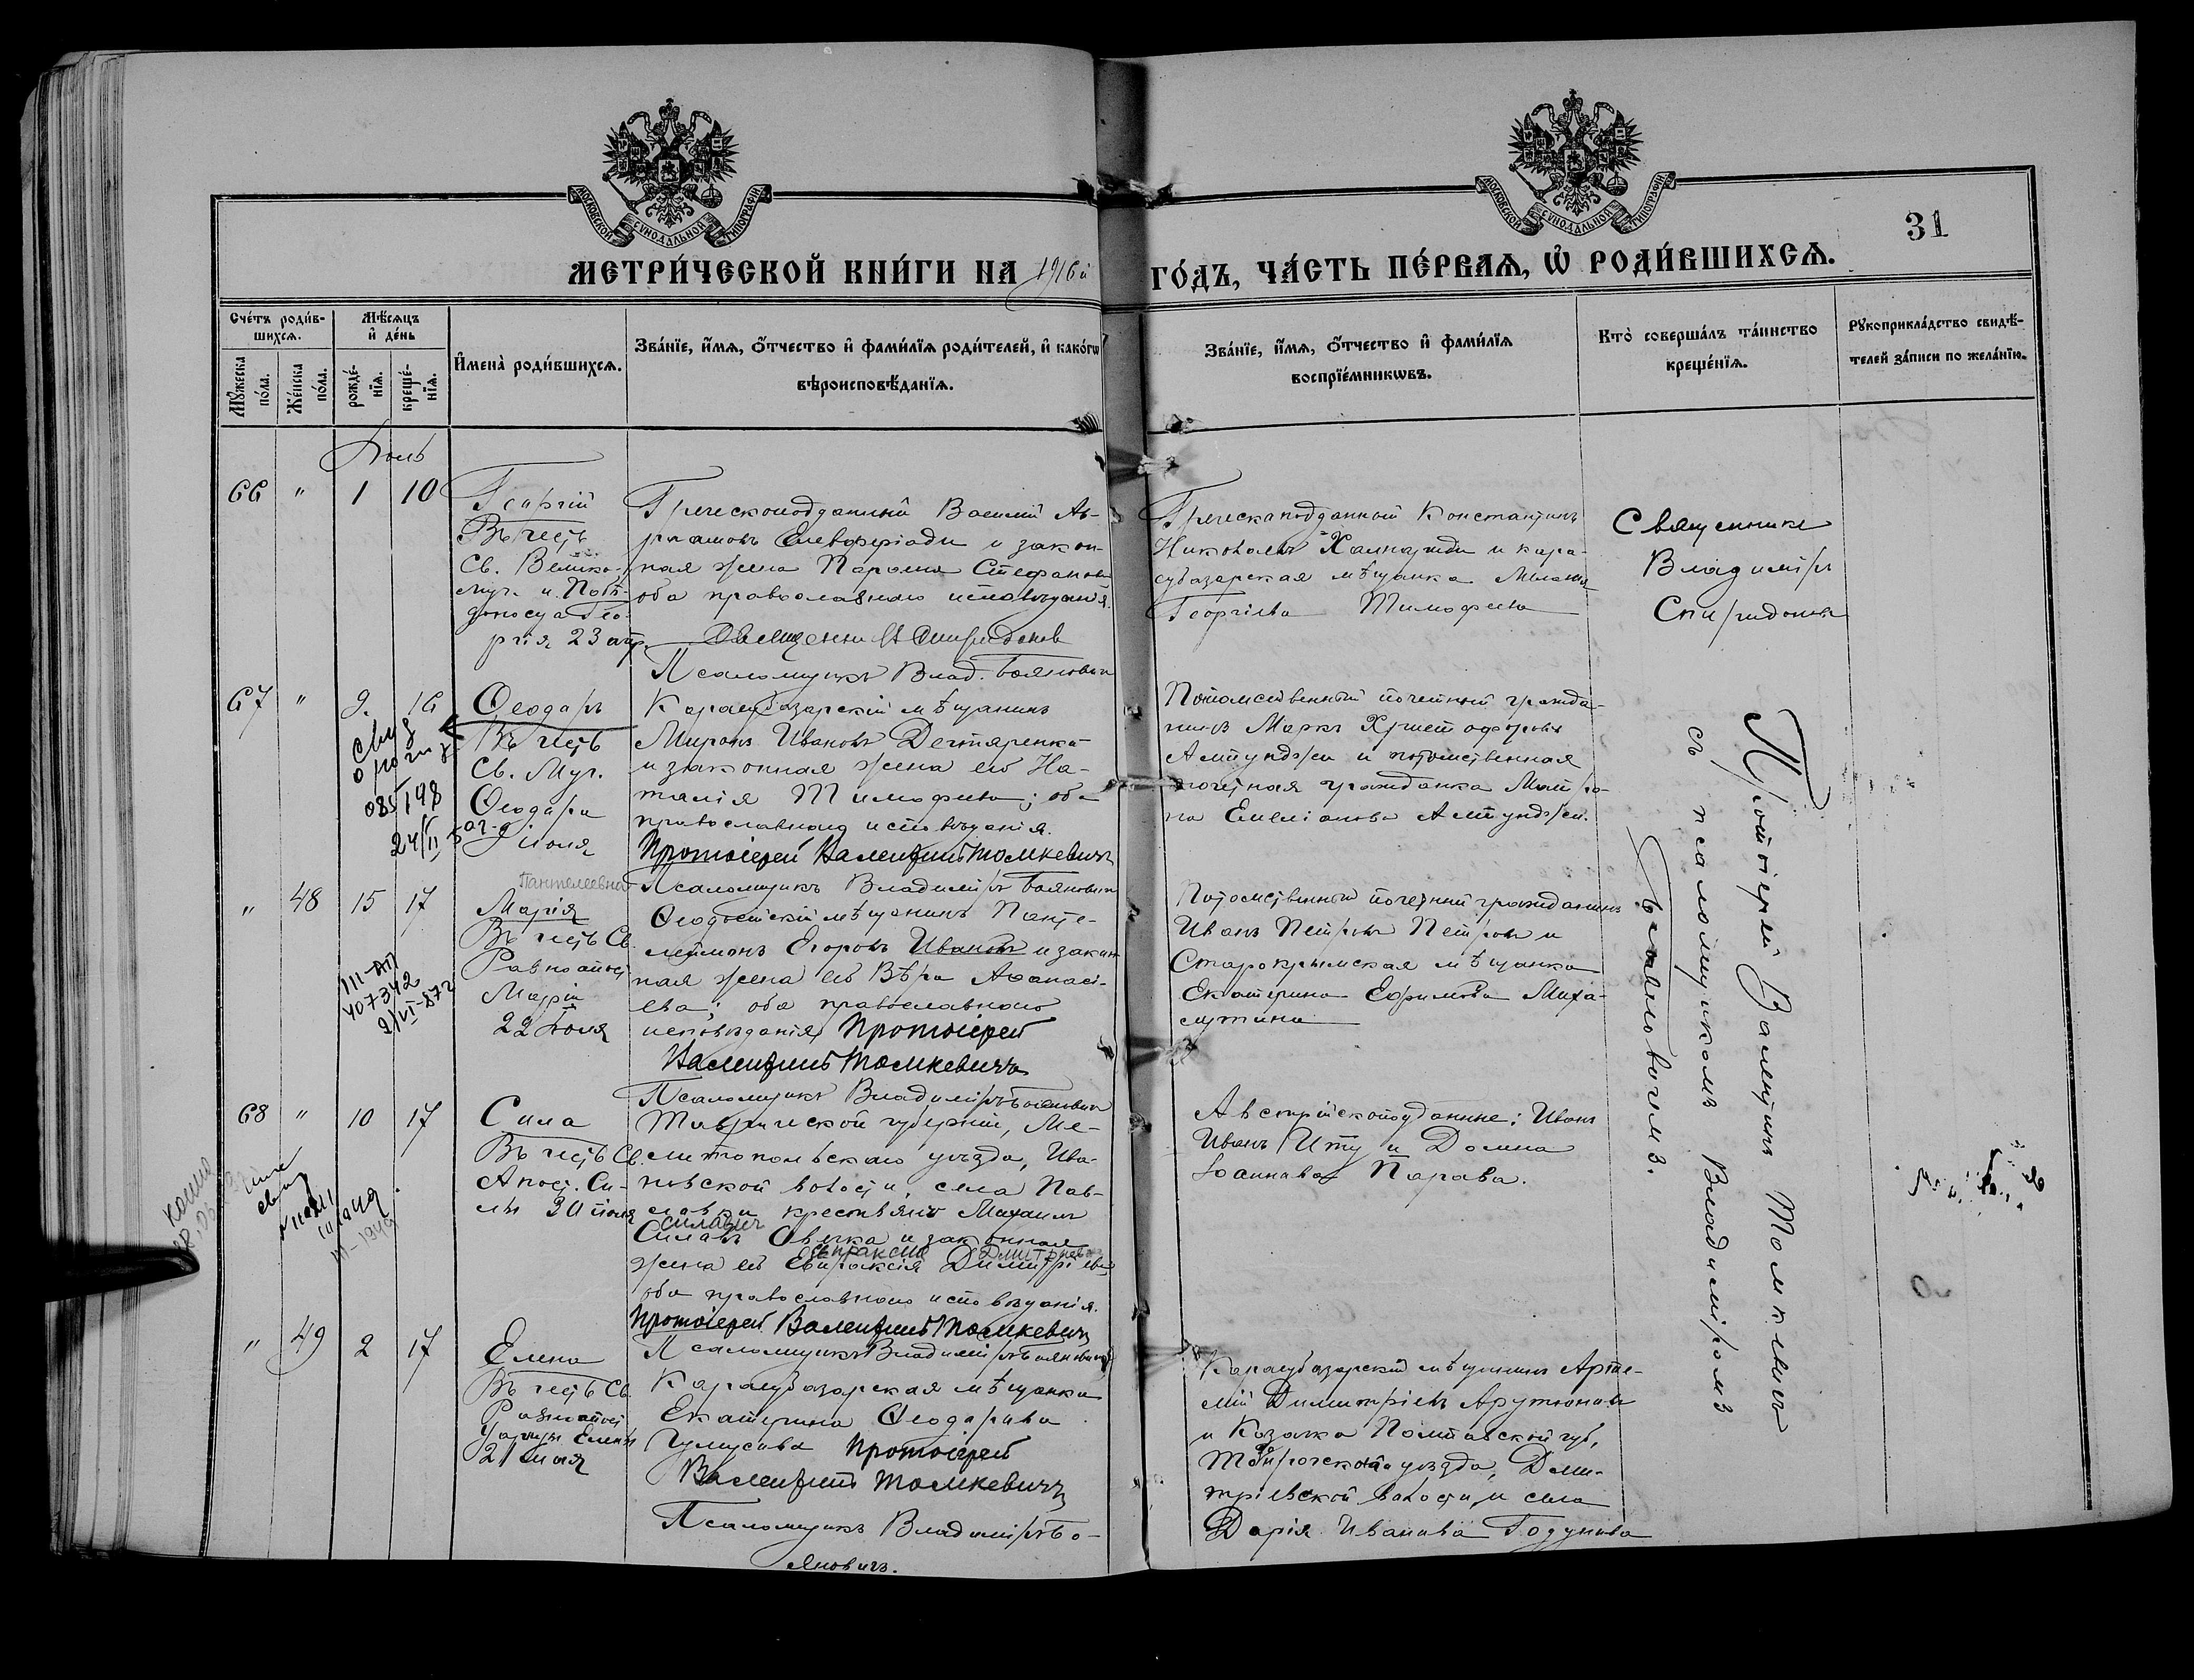 МОСКОВСКОЙ СѴНОДАЛЬНОЙ ТИПОГРАФІИ
МОСКОВСКОЙ СѴНОДАЛЬНОЙ ТИПОГРАФІИ
31
МЕТРИ́ЧЕСКОЙ КНИ́ГИ НА 1916й ГО́ДЪ, ЧА́СТЬ ПЕ́РВАѦ, Ѡ҆ РОДИ́ВШИХСѦ.
Сче́тъ роди́в-
шихсѧ.
Мꙋ́жеска по́ла.
Же́нска по́ла.
Мѣ́сѧцъ
и҆ де́нь
рожде́-
нїѧ.
креще́-
нїѧ.
И҆мена̀ роди́вшихсѧ.
Зва́нїе, и҆́мѧ, ѻ҆́тчество и҆ фами́лїѧ роди́телей, и҆ како́гѡ
вѣроисповѣ́данїѧ.
Зва́нїе, и҆́мѧ, ѻ҆́тчество и҆ фами́лїѧ
воспрїе́мникѡвъ.
Кто̀ соверша́лъ та́инство
креще́нїѧ.
Рꙋкоприкла́дство свидѣ́-
телей за́писи по жела́нїю.
Іюль
66 " 1 10
Георгій
Въ честь
Св. Велико-
муч. и Побѣ-
доносца Гео-
ргія 23 апр.
Греческоподданный Василій Ав-
рамовъ Елевферіади и закон-
ная жена Парсния Стефанова
оба православнаго исповѣданія.
Священникъ Вл Спиридонов
Псаломщикъ Влад. Боянович
Греческоподданный Константинъ
Николаевъ и кара-
субазарская мѣщанка Меланія
Георгіева Тимофеева
Священникъ
Владиміръ
Спиридоновъ
67 " 9. 16
свид
о рожд
085198
24/II 50г.
Ѳеодоръ
Въ честь
Св. Муч.
Ѳеодора
9 іюля
Карасубазарскій мѣщанинъ
Миронъ Ивановъ Дегтяренко
и законная жена его На-
талія Тимофеева; оба
православнаго исповѣданія.
Протоіерей Валентинъ Томкевичъ
Псаломщикъ Владиміръ Бояновичъ
Потомственный почетный гражда-
нинъ Маркъ Христофоровъ
Алтунджи и потомственная
почетная гражданка Матро-
на Емеліанова Алтунджи.
" 48 15 17
III-АП
407342
2/VI-87г
Пантелеевна
Марія
Въ честь Св.
Равноапост.
Маріи
22 Іюля
Ѳеодосійскій мѣщанинъ Панте-
леймонъ Егоровъ Ивановъ и закон-
ная жена его Вѣра Аѳанасі-
ева; оба православнаго
исповѣданія Протоіерей
Валентинъ Томкевичъ
Псаломщикъ Владиміръ Бояновичъ
Потомственный почетный гражданинъ
Иванъ Петровъ Петровъ и
Старокрымская мѣщанка
Екатерина Ефимова Миха-
68 " 10 17
копия
III-1949
Сила
Въ честь Св.
Апост. Си-
лы 30 іюля
Таврической губерніи, Ме-
литопольскаго уѣзда, Ива-
новской волости, села Пав-
ловки крестьянинъ Михаилъ
Силович
Силавъ Овечка и законная
Евпраксия Дмитриевна
жена его Евпраксія Димитріева
оба православнаго исповѣданія.
Протоіерей Валентинъ Томкевичъ
Псаломщикъ Владиміръ Бояновичъ
Австрійскоподданные: Иванъ
Ивановъ Иту и Домна
Іоаннова Парава.
" 49 2 17
Елена
Въ честь Св.
Равноапост
Царицы Елены
21 мая
Карасубазарская мѣщанка
Екатерина Ѳеодорова
Протоіерей
Валентинъ Томкевичъ
Псаломщикъ Владиміръ Бо-
яновичъ.
Карасубазарскій мѣщанинъ Арте-
мій Димитріевъ Арутюновъ
и Козачка Полтавской губ.,
уѣзда, Дми-
тріевской волости и села
Дарія Иванова Годунова
Протоіерей Валентинъ Томкевичъ
съ псаломщикомъ Владиміромъ
Бояновичемъ.